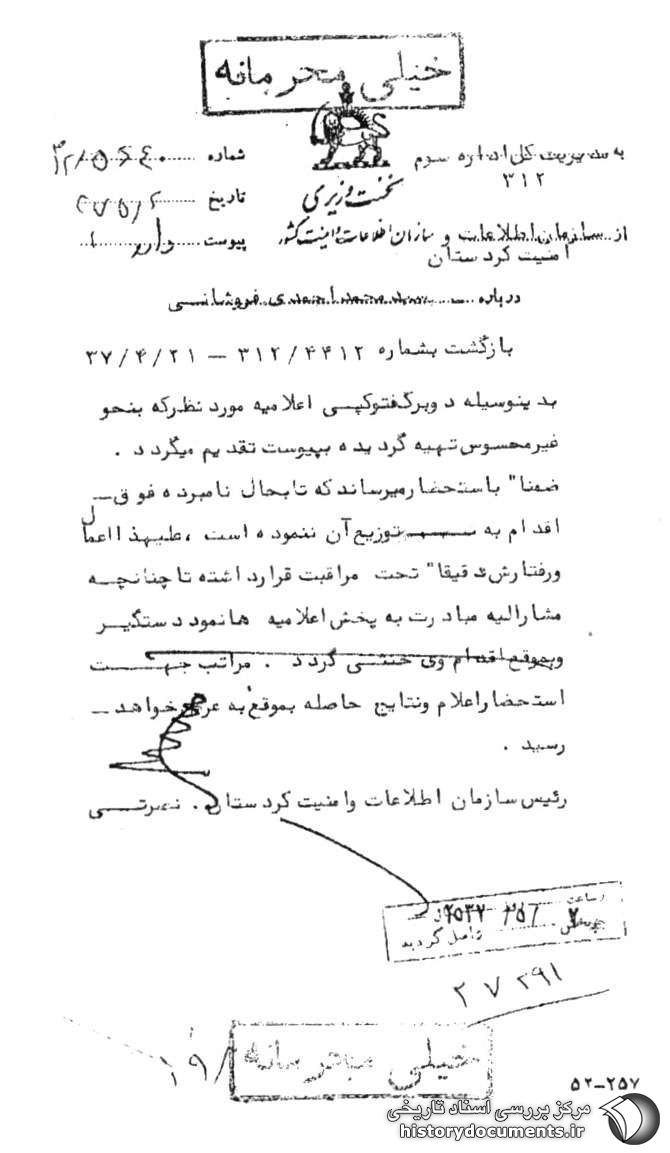 خیلی محرمانه
به مدیریت کل اداره سوم
۳۱۲
نخست وزیری
سازمان اطلاعات و امنیت کشور
شماره
تاریخ
پیوست دارد
از سازمان اطلاعات و
امنیت کردستان
درباره سید محمد احمدی فروشانی
بازگشت بشماره ۳۱۲/۴۴۱۲ – ۳۷/۴/۲۱
بدینوسیله دو برگ فتوکپی اعلامیه مورد نظر که بنحو
غیر محسوس تهیه گردیده بپیوست تقدیم میگردد .
ضمنا" باستحضار میرساند که تا بحال نامبرده فوق
اقدام به توزیع آن ننموده است ، علیهذا اعمال
و رفتارش دقیقا" تحت مراقبت قرار داشته تا چنانچه
مشارالیه مبادرت به پخش اعلامیه ها نمود دستگیر
و بموقع اقدام وی خنثی گردد . مراتب جهت
استحضار اعلام و نتایج حاصله بموقع به عرض خواهد
رسید .
رئیس سازمان اطلاعات و امنیت کردستان . نصرتی
ساعت
۲۵۳۷ /۵/
واصل گردید
۲۷۲۹۱
خیلی محرمانه
۱۹/
۵۲-۲۵۷
مرکز بررسی اسناد تاریخی
historydocuments.ir